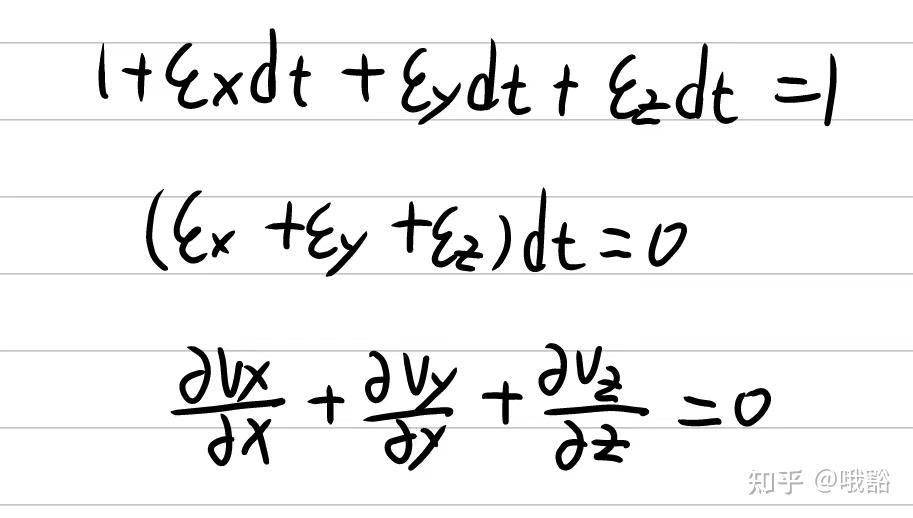 1+εxdt+εydt+εzdt=1
(εx+εy+εz)dt=0
∂Vx/∂x+∂Vy/∂y+∂Vz/∂z=0
知乎 @哦豁